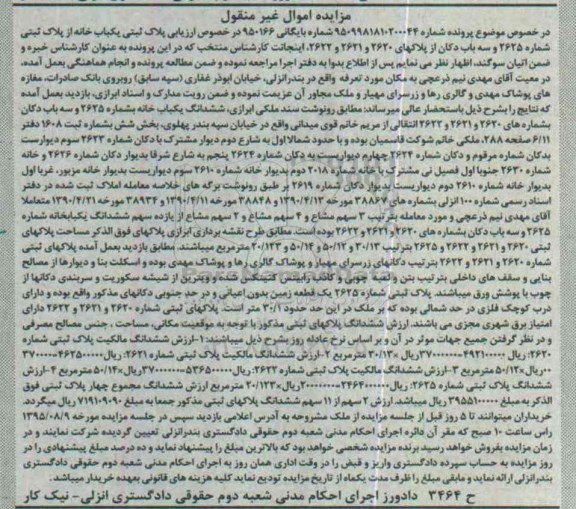 مزایده اموال غیر منقول
در خصوص موضوع پرونده شماره ۹۵۰۹۹۸۱۸۱۰۲۰۰۰۴۴ شماره بایگانی ۹۵۰۱۶۶ در خصوص ارزیابی پلاک ثبتی یکباب خانه از پلاک ثبتی
شماره ۲۶۲۵ و سه باب دکان از پلاکهای ۲۶۲۰ و ۲۶۲۱ و ۲۶۲۲، اینجانب کارشناس منتخب که در این پرونده به عنوان کارشناس خبره و
ضمن اتیان سوگند، اظهار نظر می نمایم پس از اطلاع بدوا به دفتر اجرا مراجعه نموده و ضمن مطالعه پرونده و انجام هماهنگی بعمل آمده،
در معیت آقای مهدی نیم ذرعچی به مکان مورد تعرفه واقع در بندرانزلی، خیابان ابوذر غفاری (سپه سابق) روبروی بانک صادرات، مغازه
های پوشاک مهدی و گالری رها و زرسرای مهیار و ملک مجاور آن عزیمت نموده و ضمن رویت مدارک و اسناد ابرازی، بازدید بعمل آمده
که نتایج را بشرح ذیل باستحضار عالی میرساند: مطابق رونوشت سند ملکی ابرازی، ششدانگ یکباب خانه بشماره ۲۶۲۵ و سه باب دکان
بشماره های ۲۶۲۰ و ۲۶۲۱ و ۲۶۲۲ انتقالی از مریم خانم قوی میدانی واقع در خیابان سپه بندر پهلوی، بخش شش بشماره ثبت ۱۶۰۸ دفتر
۶/۱۱ صفحه ۲۸۸، ملکی خانم شوکت قاسمیان بوده و با حدود شمالا اول به شارع دوم دیوار مشترک با دکان شماره ۲۶۲۳ سوم دیواریست
بدکان شماره مرقوم و دکان شماره ۲۶۲۴ چهارم دیواریست به دکان شماره ۲۶۲۴ پنجم به شارع شرقا بدیوار دکان شماره ۲۶۲۶ و خانه
شماره ۲۶۳۰ جنوبا اول فصیل نی مشترک با خانه شماره ۲۰۱۸ دوم بدیوار خانه شماره ۲۶۱۰ سوم دیواریست بدیوار خانه مزبور، غربا اول
بدیوار خانه شماره ۲۶۱۰ دوم دیواریست بدیوار دکان شماره ۲۶۱۹ بر طبق رونوشت برگه های خلاصه معامله املاک ثبت شده در دفتر
اسناد رسمی شماره ۱۰۰ انزلی بشماره های ۳۸۸۶۷ مورخه ۱۳۹۰/۴/۱۳ و ۳۸۸۴۸ مورخه ۱۳۹۰/۴/۱۱ و ۳۸۹۳۴ مورخه ۱۳۹۰/۴/۲۱ متعاملا
آقای مهدی نیم ذرعچی و مورد معامله بترتیب ۳ سهم مشاع و ۴ سهم مشاع و ۲ سهم مشاع از یازده سهم ششدانگ یکبابخانه شماره
۲۶۲۵ و سه باب دکان بشماره های ۲۶۲۰ و ۲۶۲۱ و ۲۶۲۲ بوده است. مطابق طرح نقشه برداری ابرازی پلاکهای فوق الذکر مساحت پلاکهای
ثبتی ۲۶۲۰ و ۲۶۲۱ و ۲۶۲۲ و ۲۶۲۵ بترتیب ۳۰/۱۳ و ۵۰/۱۲ و ۵۰/۱۴ و ۲۰/۱۲۳ مترمربع میباشند. مطابق بازدید بعمل آمده پلاکهای ثبتی
شماره ۲۶۲۰ و ۲۶۲۱ و ۲۶۲۲ بترتیب دکانهای زرسرای مهیار و پوشاک گالری رها و پوشاک مهدی بوده و اسکلت بنا و دیوارها از مصالح
بنایی و سقف های داخلی بترتیب بتن و لمبه چوبی و کاذب رابیتس کنیتکس شده و ویترین از شیشه سکوریت و سربندی دکانها از
چوب با پوشش ورق میباشند. پلاک ثبتی شماره ۲۶۲۵ یک قطعه زمین بدون اعیانی و در حد جنوبی دکانهای مذکور واقع بوده و دارای
درب کوچک فلزی در حد شمالی بوده که بر ملک در این حد حدود ۳۰/۱ متر است. پلاکهای ثبتی شماره ۲۶۲۰ و ۲۶۲۱ و ۲۶۲۲ دارای
امتیاز برق شهری مجزی می باشند. ارزش ششدانگ پلاکهای ثبتی مذکور با توجه به موقعیت مکانی، مساحت، جنس مصالح مصرفی
و در نظر گرفتن جمیع جهات موثر در آن و بر اساس نرخ عادله روز بشرح ذیل میباشند: ۱-ارزش ششدانگ مالکیت پلاک ثبتی شماره
الذکر به مبلغ ۳۹۵۵۱۰۰۰۰۰۰ ریال میباشد. ارزش ۲ سهم از ۱۱ سهم ششدانگ پلاکهای ثبتی مذکور جمعا به مبلغ ۷۱۹۱۰۹۰۹۰ ریال میگردد.
خریداران میتوانند تا ۵ روز قبل از جلسه مزایده از ملک مشروحه به آدرس اعلامی بازدید سپس در جلسه مزایده مورخه ۱۳۹۵/۰۸/۹
راس ساعت ۱۰ صبح که مقر آن دائره اجرای احکام مدنی شعبه دوم حقوقی دادگستری بندرانزلی تعیین گردیده شرکت نمایند و در
زمان مزایده بفروش خواهد رسید برنده مزایده شخصی خواهد بود که بالاترین مبلغ را پیشنهاد نماید و ده درصد مبلغ پیشنهادی را در
روز مزایده به حساب سپرده دادگستری واریز و قبض را در وقت اداری همان روز به اجرای احکام مدنی شعبه دوم حقوقی دادگستری
بندرانزلی ارائه نماید و مابقی مبلغ را ظرف مدت یکماه از تاریخ مزایده تودیع نماید کلیه هزینه های قانونی بعهده خریدار میباشد.
ح ۳۴۶۴ دادورز اجرای احکام مدنی شعبه دوم حقوقی دادگستری انزلی- نیک کار